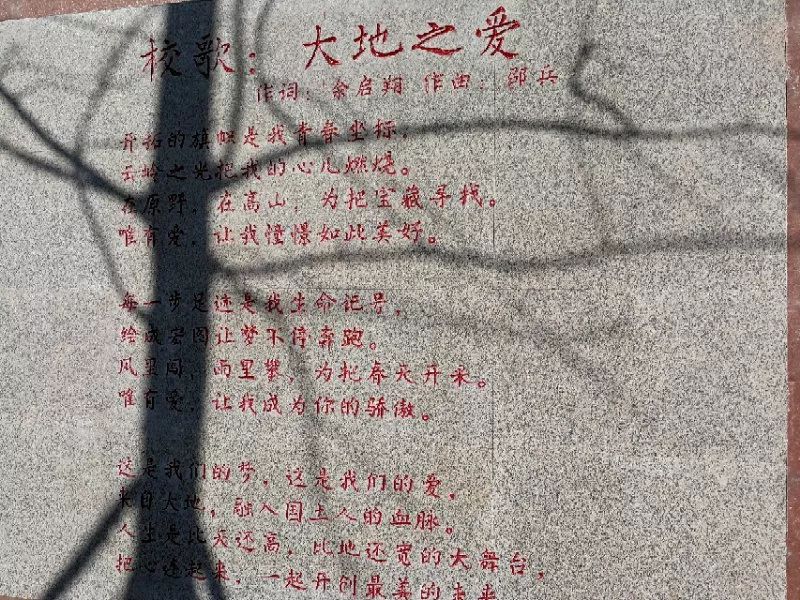 校歌：大地之爱
作词：余启翔 作曲：邵兵
开拓的旗帜是我青春坐标，
云岭之光把我的心儿燃烧。
在原野，在高山，为把宝藏寻找。
唯有爱，让我憧憬如此美好。
每一步足迹是我生命记号，
绘成宏图让梦不停奔跑。
风里闯，雨里攀，为把春天开采。
唯有爱，让我成为你的骄傲。
这是我们的梦，这是我们的爱，
来自大地，融入国土人的血脉。
人生是比天还高，比地还宽的大舞台，
把心连起来，一起开创最美的未来